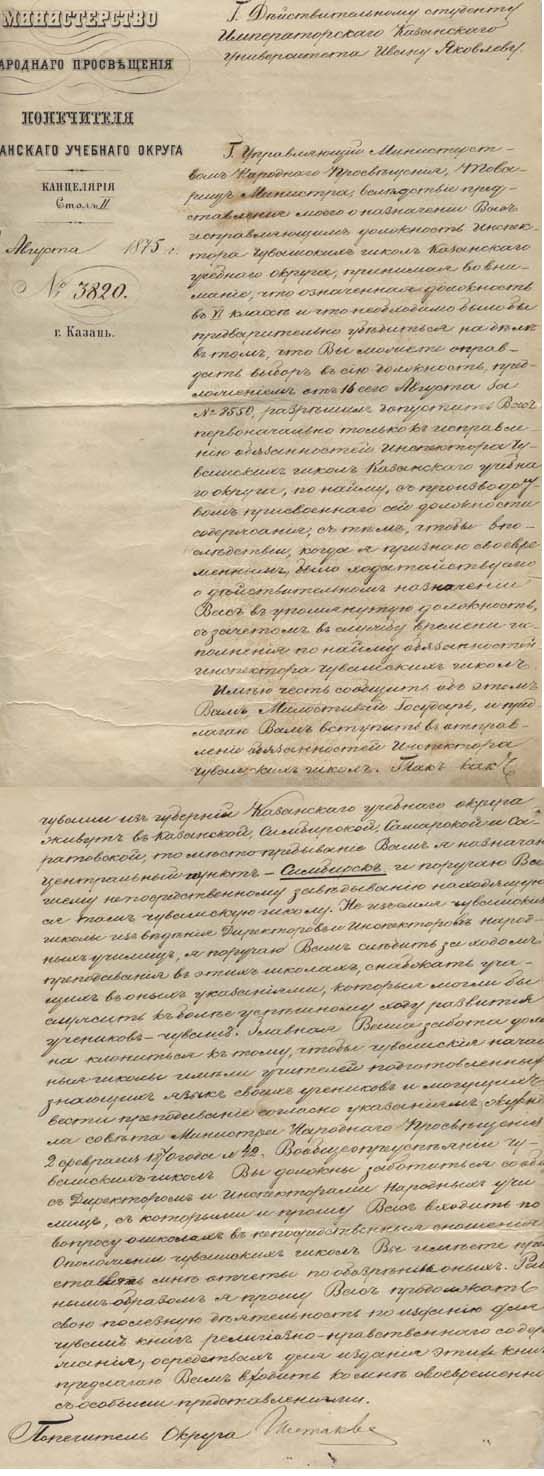 МИНИСТЕРСТВО
АРОДНАГО ПРОСВѢЩЕНІЯ
ПОПЕЧИТЕЛЯ
АНСКАГО УЧЕБНАГО ОКРУГА
КАНЦЕЛЯРІЯ
Столъ II
Августа 1875 г.
№ 3820.
г. Казань.
Г. Дѣйствительному студенту
Императорскаго Казанскаго
Университета Ивану Яковлеву.
Г. Управляющій Министерст-
вомъ Народнаго Просвѣщенія, Това-
рищъ Министра, вслѣдствіе пред-
ставленія моего о назначеніи Васъ
исправляющимъ должность Инспек-
тора Чувашскихъ школъ Казанскаго
учебнаго округа, принимая во вни-
маніе, что означенная должность
въ VI классѣ и что необходимо было бы
предварительно убѣдиться на дѣлѣ
въ томъ, что Вы можете оправ-
дать выборъ въ сію должность, пред-
ложеніемъ отъ 16 сего Августа за
№ 8550, разрѣшилъ допустить Васъ
первоначально только къ исправле-
нію обязанностей Инспектора Чу-
вашскихъ школъ Казанскаго учебна-
го округа, по найму, съ производст-
вомъ присвоеннаго сей должности
содержанія, съ тѣмъ, чтобы впо-
слѣдствіи, когда я признаю своевре-
меннымъ, было ходатайствуемо
о дѣйствительномъ назначеніи
Васъ въ упомянутую должность,
съ зачетомъ въ службу времени ис-
полненія по найму обязанностей
инспектора чувашскихъ школъ.
Имѣю честь сообщить объ этомъ
Вамъ, Милостивый Государь, и пред-
лагаю Вамъ вступить въ отправ-
леніе обязанностей Инспектора
чувашскихъ школъ. Такъ какъ
чуваши изъ губерній Казанскаго учебнаго округа
живутъ въ Казанской, Симбирской, Самарской и Са-
ратовской, то мѣстопребываніе Вамъ я назначаю
центральный пунктъ – Симбирскъ и поручаю Ва-
шему непосредственному завѣдыванію находящую-
ся тамъ чувашскую школу. Не изъемля чувашскія
школы изъ вѣдѣнія Директоровъ и Инспекторовъ народ-
ныхъ училищъ, я поручаю Вамъ слѣдить за ходомъ
преподаванія въ этихъ школахъ, снабжать уча-
щихъ въ оныхъ указаніями, которыя могли бы
служить къ болѣе успѣшному ходу развитія
учениковъ – чувашъ. Главная Ваша забота долж-
на клониться къ тому, чтобы чувашскія началь-
ныя школы имѣли учителей подготовленныхъ,
знающихъ языкъ своихъ учениковъ и могущихъ
вести преподаваніе согласно указаніямъ Журна-
ла совѣта Министра Народнаго Просвѣщенія
2 февраля 1870 года № 42. Вообще о преуспѣяніи чу-
вашскихъ школъ Вы должны заботиться сообща
съ Директоромъ и Инспекторами Народныхъ учи-
лищъ, съ которыми и прошу Васъ входить по
вопросу о школахъ въ непосредственныя сношенія.
О положеніи чувашскихъ школъ Вы имѣете пред-
ставлять мнѣ отчеты по обозрѣніи оныхъ. Рав-
нымъ образомъ я прошу Васъ продолжать
свою полезную дѣятельность по изданію для
чувашъ книгъ религіозно-нравственнаго содер-
жанія, о средствахъ для изданія этихъ книгъ
предлагаю Вамъ входить ко мнѣ своевременно
съ особыми представленіями.
Попечитель Округа Шестаковъ